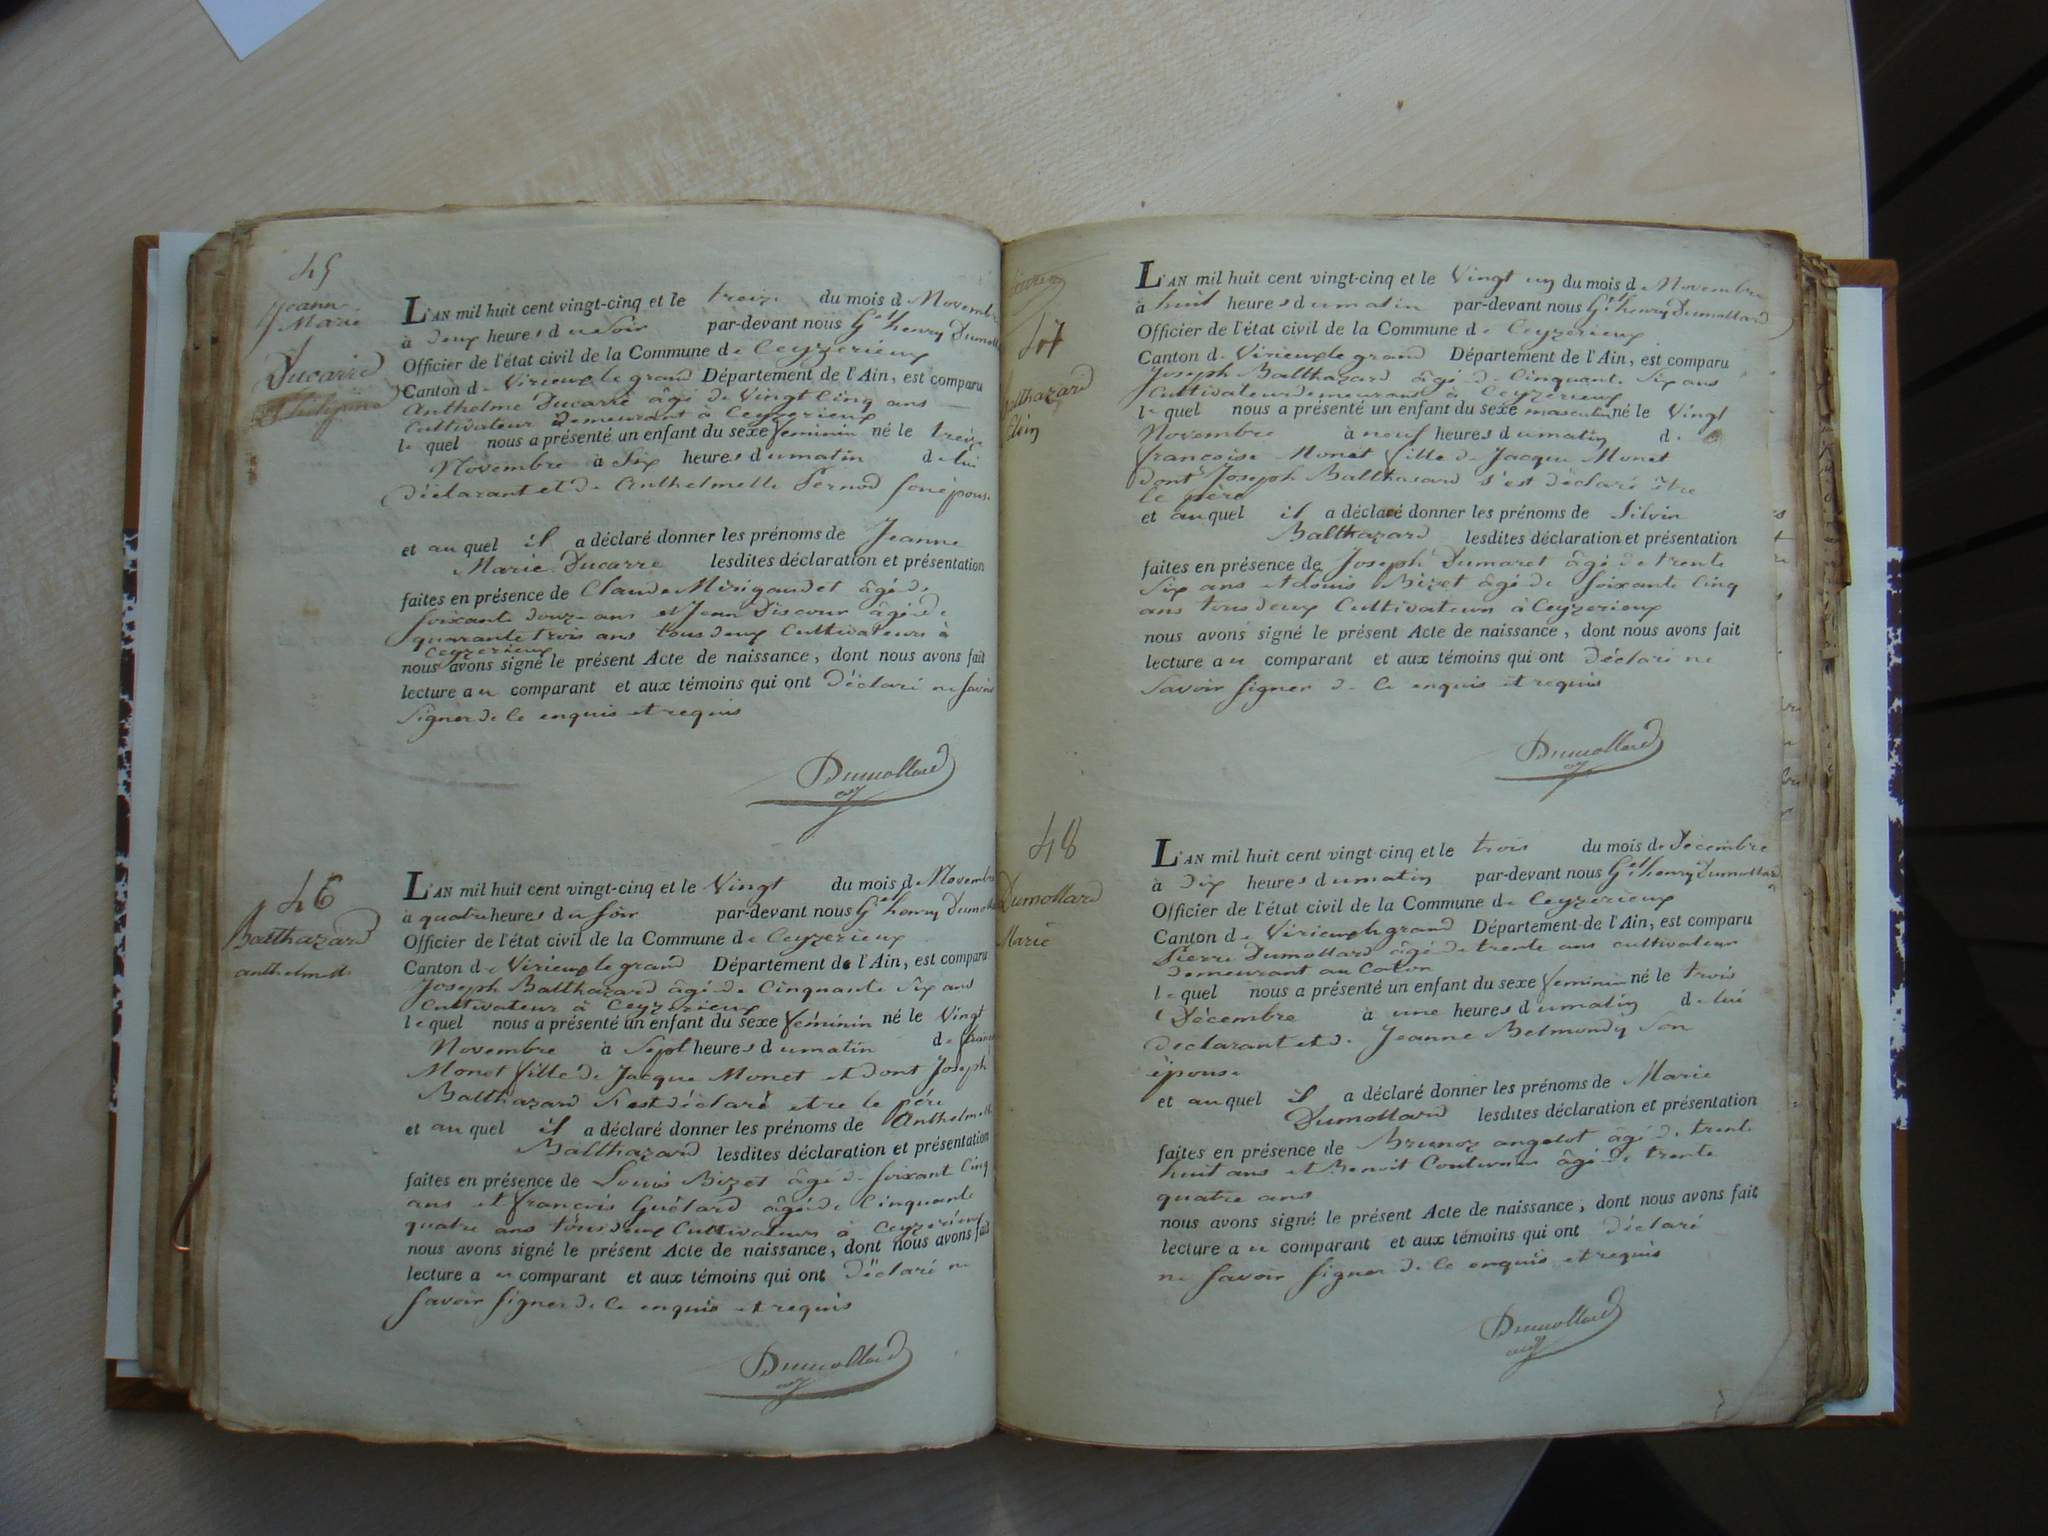 45
Jeann
Marie
Ducarre
L'AN mil huit cent vingt-cinq et le treize du mois d Novembre
à deux heures du Soir par-devant nous Gt henry Dumollard
Officier de l'état civil de la Commune de Ceyzerieux
Canton de Virieux le grand Département de l'Ain, est comparu
Anthelme Ducarre âgé de Vingt Cinq ans
Cultivateur Demeurant à Ceyzerieux
le quel nous a présenté un enfant du sexe feminin né le treize
Novembre à Six heures du matin de lui
Déclarant et de Anthelmelle Pernod son épouse
et au quel il a déclaré donner les prénoms de Jeanne
Marie Ducarre lesdites déclaration et présentation
faites en présence de Claude Mirigaudet âgé de
soixante douze ans et Jean Discour âgé de
quarante trois ans tous deux Cultivateurs à
Ceyzerieux
nous avons signé le présent Acte de naissance, dont nous avons fait
lecture au comparant et aux témoins qui ont Déclaré ne savoir
Signer de Ce enquis et requis
Dumollard
46
Balthazard
anthelmette
L'AN mil huit cent vingt-cinq et le Vingt du mois de Novembre
à quatre heures du soir par-devant nous Gt henry Dumollard
Officier de l'état civil de la Commune de Ceyzerieux
Canton de Virieux le grand Département de l'Ain, est comparu
Joseph Balthazard âgé de Cinquante Six ans
Cultivateur à Ceyzerieux
le quel nous a présenté un enfant du sexe féminin né le Vingt
Novembre à Sept heures du matin de
Monet fille de Jacque Monet et dont Joseph
Balthazard s'est déclaré etre le père
et au quel il a déclaré donner les prénoms de Anthelmette
Balthazard lesdites déclaration et présentation
faites en présence de Louis Bizet âgé de soixant Cinq
ans et françois Guélard âgé de Cinquante
quatre ans tous deux Cultivateurs à Ceyzérieux
nous avons signé le présent Acte de naissance, dont nous avons fait
lecture au comparant et aux témoins qui ont Déclaré ne
savoir signer de Ce enquis et requis
Dumollard
47
Balthazard
L'AN mil huit cent vingt-cinq et le Vingt un du mois de Novembre
à huit heures du matin par-devant nous Gt henry Dumollard
Officier de l'état civil de la Commune de Ceyzerieux
Canton de Virieux le grand Département de l'Ain, est comparu
Joseph Balthazard âgé de Cinquante Six ans
Cultivateur demeurans à Ceyzerieux
le quel nous a présenté un enfant du sexe masculin né le Vingt
Novembre à neuf heures du matin de
françoise Monet fille de Jacque Monet
dont Joseph Balthasard s'est déclaré être
le père
et au quel il a déclaré donner les prénoms de Silvin
Balthazard lesdites déclaration et présentation
faites en présence de Joseph Dumaret âgé de trente
Six ans et Louis Bizet âgé de soixante Cinq
ans tous deux Cultivateurs à Ceyzerieux
nous avons signé le présent Acte de naissance, dont nous avons fait
lecture au comparant et aux témoins qui ont Déclaré ne
Savoir signer de Ce enquis et requis
Dumollard
48
Dumollard
Marie
L'AN mil huit cent vingt-cinq et le trois du mois de Décembre
à Dix heures du matin par-devant nous Gt henry Dumollard
Officier de l'état civil de la Commune de Ceyzerieux
Canton de Virieux le grand Département de l'Ain, est comparu
Pierre Dumollard âgé de trente ans cultivateur
demeurant au Coton
le quel nous a présenté un enfant du sexe feminin né le trois
Décembre à une heures du matin de lui
declarant et de Jeanne Belmondy Son
épouse
et au quel il a déclaré donner les prénoms de Marie
Dumollard lesdites déclaration et présentation
faites en présence de Brunoz angelot âgé de trente
huit ans et Benoit âgé de trente
quatre ans
nous avons signé le présent Acte de naissance, dont nous avons fait
lecture au comparant et aux témoins qui ont déclaré
ne savoir signer de Ce enquis et requis
Dumollard